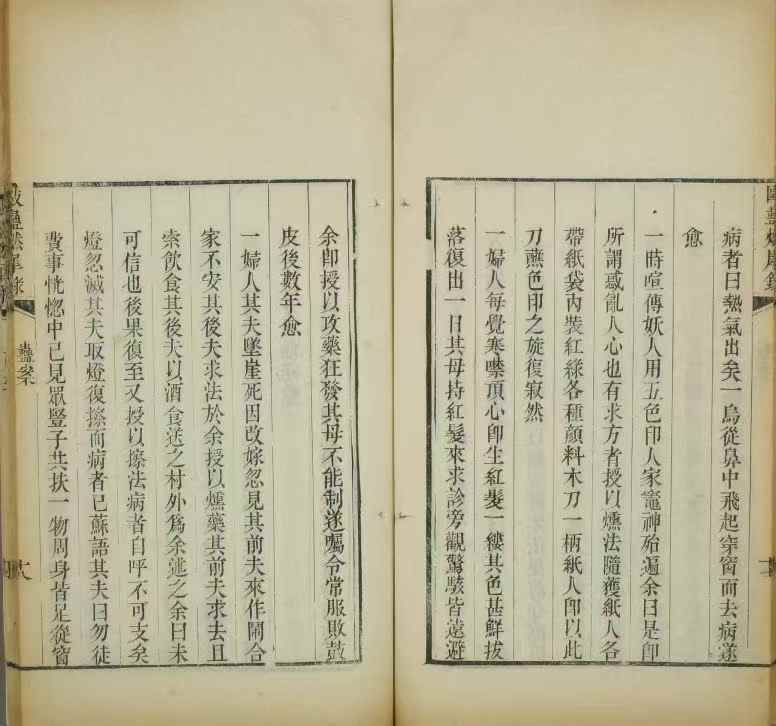 病者曰熱氣出矣一鳥從鼻中飛起穿窗而去病遂
愈
一時喧傳妖人用五色印人家竈神殆遍余曰是卽
所謂惑亂人心也有求方者授以燻法隨獲紙人各
帶紙袋內裝紅綠各種顏料木刀一柄紙人卽以此
刀蘸色印之旋復寂然
一婦人每覺寒噤頂心卽生紅髮一縷其色甚鮮拔
落復出一日其母持紅髮來求診旁觀驚駭皆遠避
余卽授以攻藥狂發其母不能制遂囑令常服敗鼓
皮後數年愈
一婦人其夫墜崖死因改嫁忽見其前夫來作鬧合
家不安其後夫求法於余授以燻藥其前夫求去且
索飲食其後夫以酒食送之村外爲余述之余曰未
可信也後果復至又授以擦法病者自呼不可支矣
燈忽滅其夫取燈復擦而病者已蘇語其夫曰勿徒
費事恍惚中已見眾豎子共扶一物周身皆足從窗
蠱案